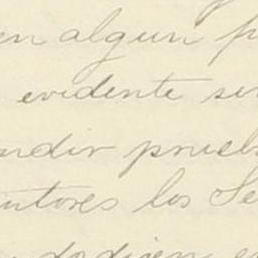 en algun p
evidente sin
ndir prueb
utores los Se